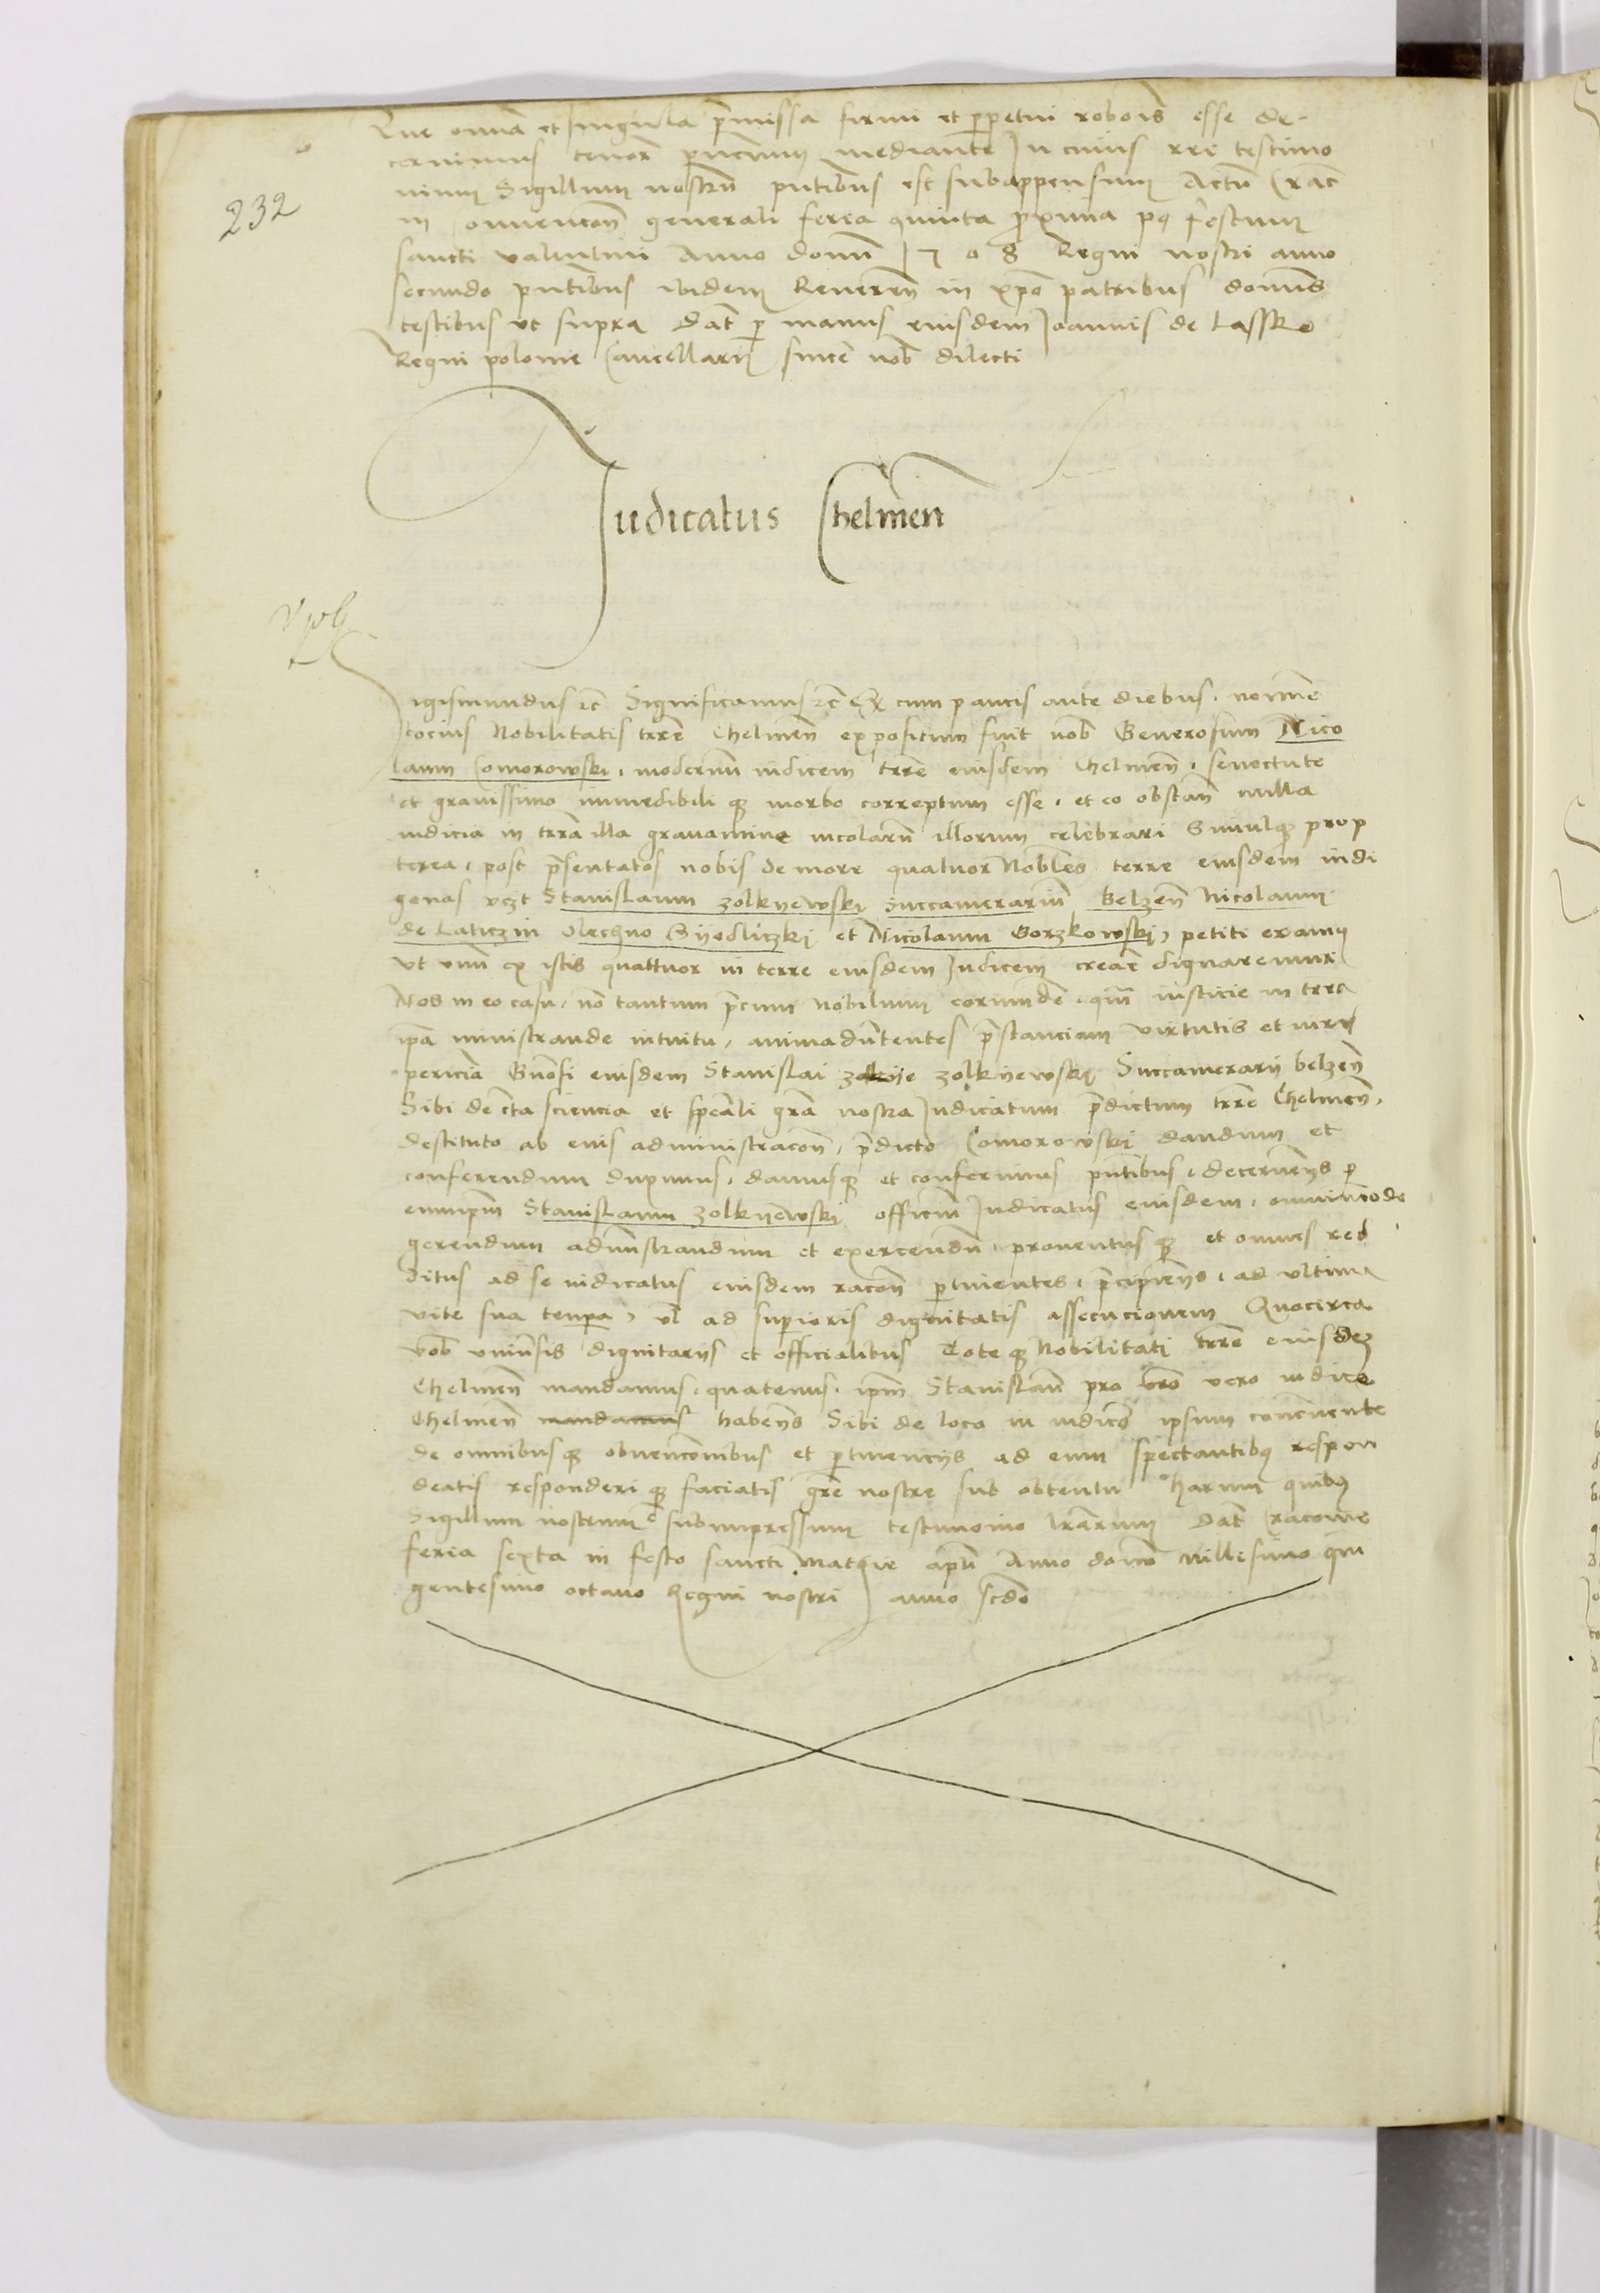 232
Que omnia et singula p̄missa firmi et perpetui roboris esse de-
cernimus tenor̄ pn̄cium mediante In cuius rei testimo
nium Sigillum nostrū pn̄tibus est subappensum Actū Crac̄
in Convencōne generali feria quinta proxima post festum
sancti valentini Anno domī 1508 Regni nostri anno
secundo pn̄tibus ibidem Reveren̄ in xp̄o patribus domīs
testibus ut supra Dat̄ per manus eiusdem Joannis de Lassko
Regni polonie Cancellarij sincē nob̄ dilecti
Judicatus Chelmen̄
Sigismundus etc̄ Significamus etc̄ Quia cum paucis ante diebus, nomīe
tocius Nobilitatis trr̄e Chelmen̄ expositum fuit nob̄ Generosum Nico
laum Comorowski, modernum iudicem trr̄e eiusdem Chelmen̄, senectute
et gravissimo incredibili que morbo correptum esse, et eo obstan̄ nulla
iudicia in trr̄a illa gravamine incolarū illorum celebrari Simulque prop
terea, post p̄sentatos nobis de more quatuor Nobiles terre eiusdem indi
genas vczt Stanislaum zolkyewsky succamerariū Belzen̄ Nicolaum
de Laticzin Olechno Syedliczki et Nicolaum Gorzkowski, petiti eramus
ut unū ex istis quattuor in terre eiusdem Judicem crear̄ dignaremur
Nos in eo casu, nō tantum p̄cum nobilium eorundē, quā iusticie in trra
ipā ministrande intuitu, animadv̄tentes p̄stanciam virtutis et iurium
pericia Gnōsi eiusdem Stanislai zolkije zolkyewski Succamerarij belzen̄
Sibi de cta sciencia et spēali grā nostra Judicatum p̄dictum trr̄e Chelmen̄,
destituto ab eius administracōe, p̄dicto Comorowski dandum et
conferendum duximus, damusque et conferimus pn̄tibus, decernen̄s per
eumip̄m Stanislaum zolkyewski officiū Judicatus eiusdem, omnimode
gerendum adm̄strandum et exercendū, proventusque et omnes red
ditus ad se iudicatus eiusdem racōe pertinentes, p̄cipien̄s, ad ultima
vite sua tempa, vl̄ ad superioris dignitatis assecucionem Quocirca
vob̄ univ̄sis dignitarijs et officialibus Toteque Nobilitati trr̄e eiusdem
Chelmen̄ mandamus, quatenus, ip̄m Stanislaū pro vr̄o vero iudice
Chelmen̄ mandamus haben̄s Sibi de loco in iudicio ipsum concernente
de omnibusque obvencōnibus et pertinencijs ad eum spectantibus respon
deatis responderique faciatis grē nostre sub obtentu harum quibus
Sigillum nostrum ē subimpressum testimonio lrārum Dat̄ Cracovie
feria sexta in festo sancti Mathie apl̄i Anno domī Millesimo quin
gentesimo octavo Regni nostri anno sc̄do